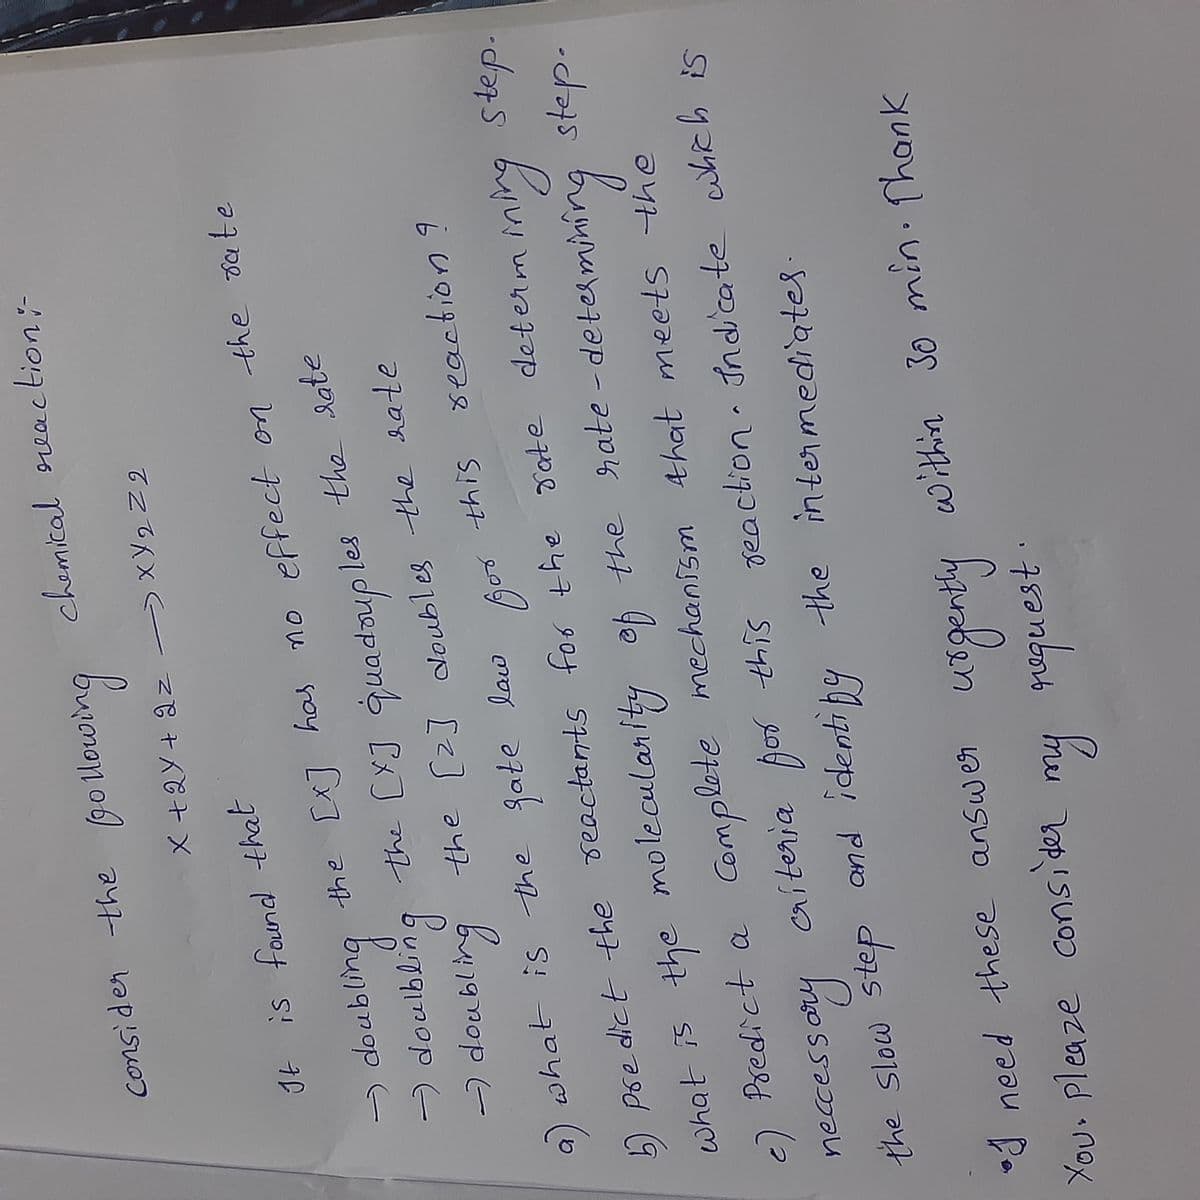 consider the following chemical reaction:-
X + 2Y + 2Z → XY2Z2
It is found that
→ doubling the [X] has no effect on the rate
→ doulbling the [Y] quadouples the rate
→ doubling the [Z] doubles the rate
a) what is the rate law for this reaction?
b) predict the reactants for the rate determining step.
what is the molecularity of the rate-determining step.
c) Predict a complete mechanism that meets the
neccessary criteria for this reaction. Indicate which is
the slow step and identify the intermediates.
•I need these answer urgently within 30 min. Thank
You. pleaze consider my request.